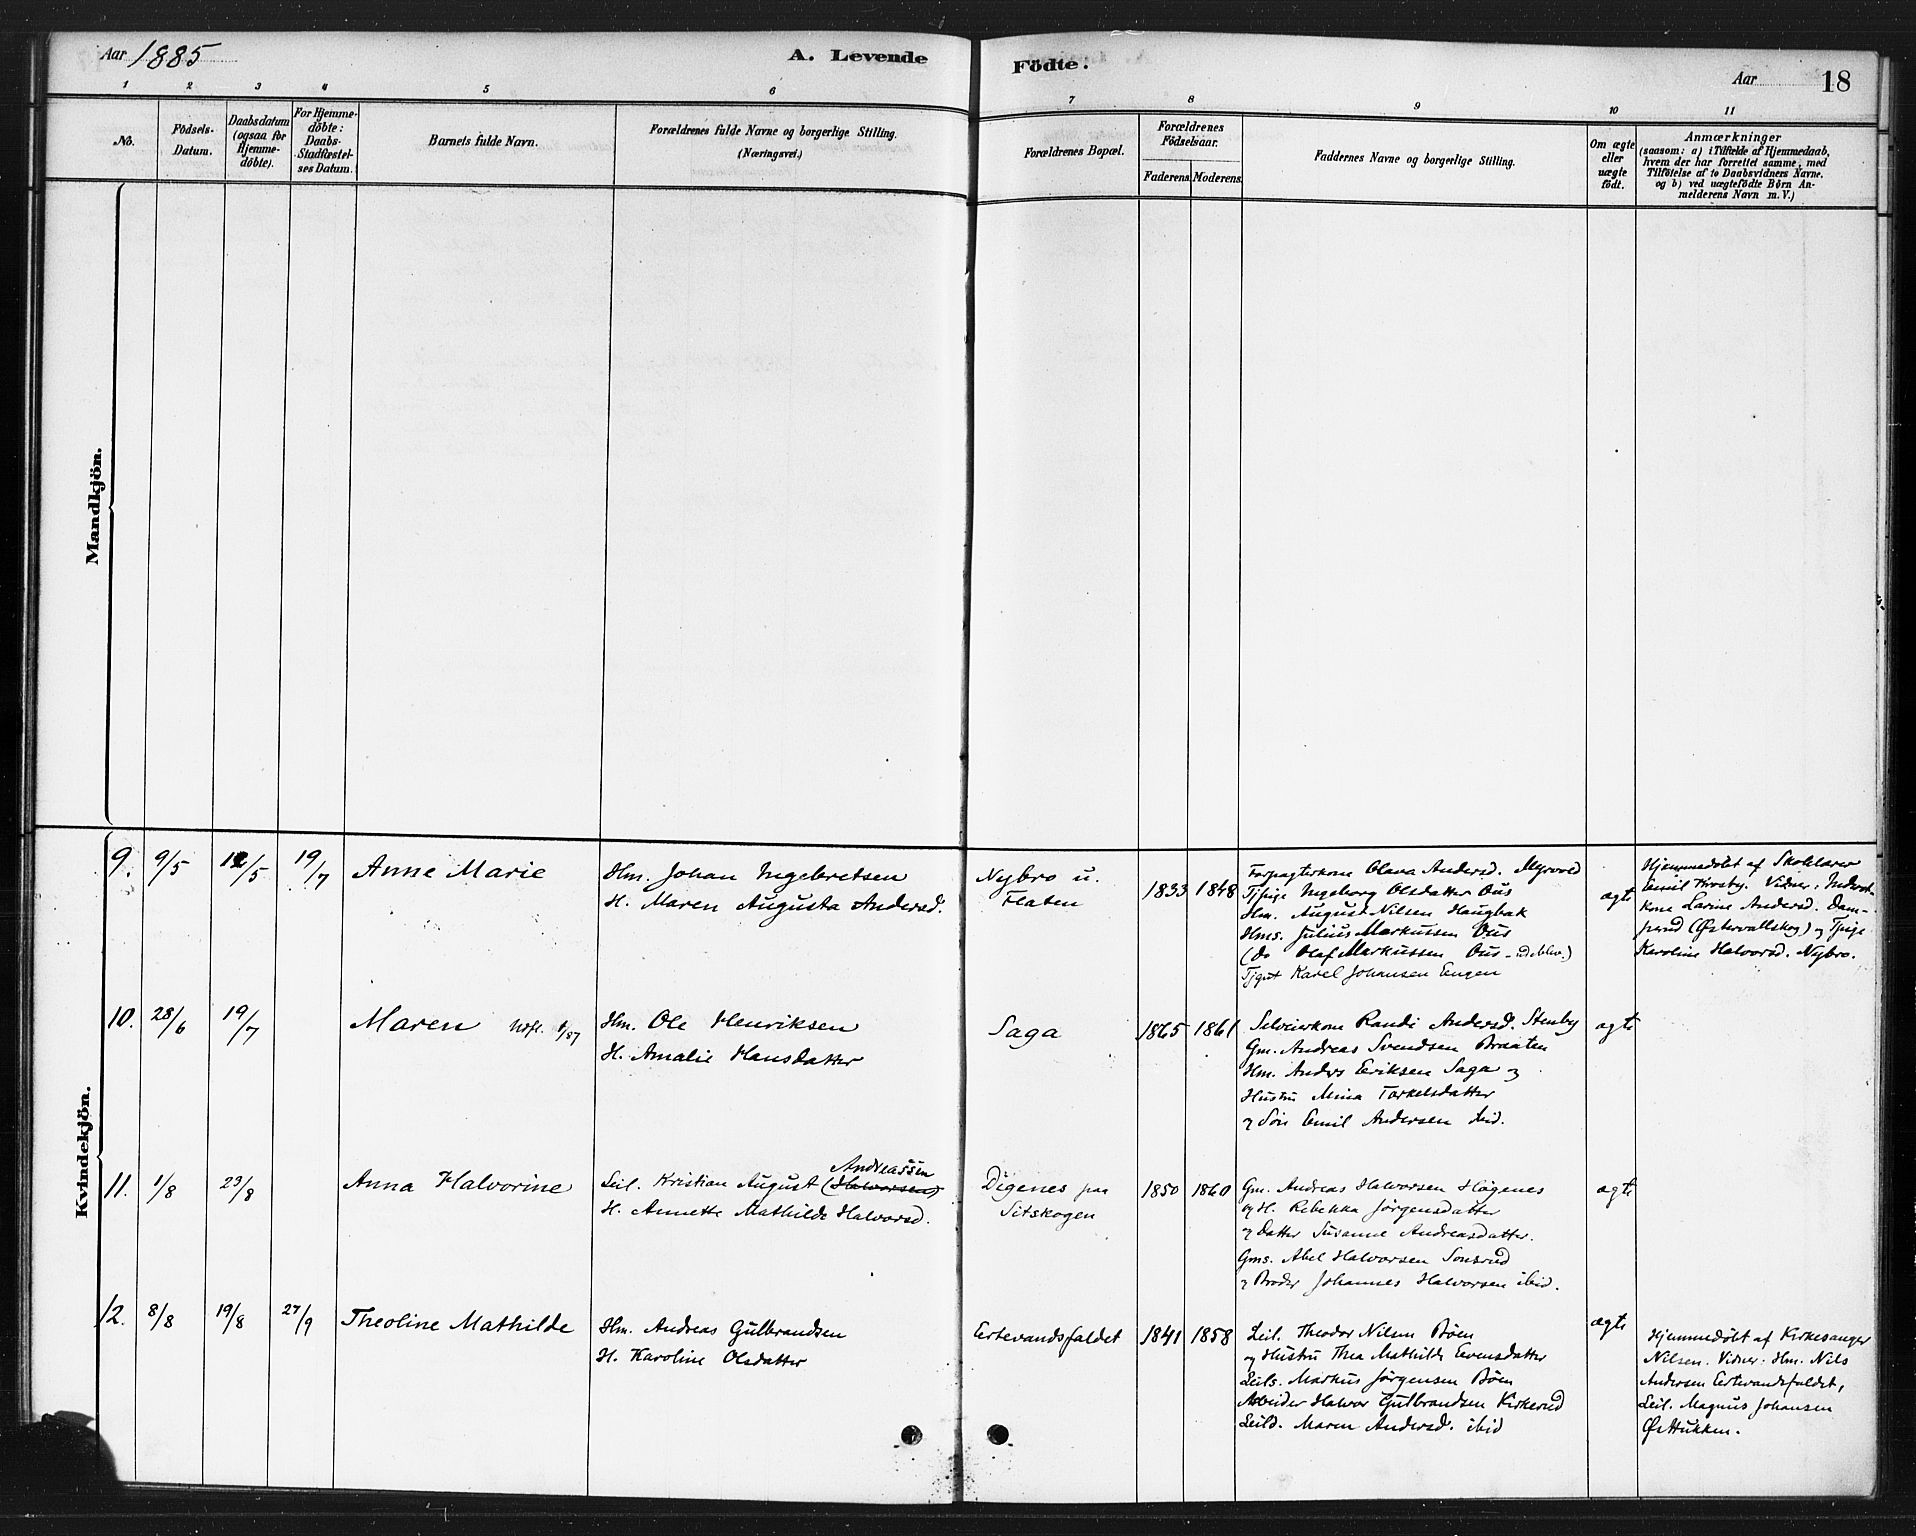 Aar 1885
A. Levende Födte.
Aar 18
1 2 3 4 5 6 7 8 9 10 11
No.
Födsels-
Datum.
Daabsdatum
(ogsaa för
Hjemme-
döbte).
For Hjemme-
döbte:
Daabs-
Stadfæstel-
ses Datum.
Barnets fulde Navn.
Forældrenes fulde Navne og borgerlige Stilling.
(Næringsvei.)
Forældrenes Bopæl.
Forældrenes
Födselsaar.
Faderens. Moderens.
Faddernes Navne og borgerlige Stilling.
Om ægte
eller
uægte
födt.
Anmærkninger
(saasom: a) i Tilfælde af Hjemmedaab,
hvem der har forrettet samme, med
Tilföielse af to Daabsvidners Navne.
og b) ved uægtefödte Börn An-
melderens Navn m. V.)
Mandkjön.
Kvindekjön.
9. 9/5 12/5 19/7 Anne Marie
Hm. Johan Ingebretsen
H. Maren Augusta Andersd.
Nybro u.
Flaten
1833 1848
Forpagterkone Olava Andersd. Myrvold
Tjpige Ingeborg Olsdatter Ous
Hm. August Nilsen Haugbak
Hms. Julius Markussen Ous
(Do Olaf Markussen Ous - udeblev.)
Tjgut Karel Johansen Engen
ægte
Hjemmedøbt af Skolelærer
Emil Krosby. Vidner: Inderst-
kone Larine Andersd. Dam-
perud (Østervallskog) og Tjpige
Karoline Halvorsd. Nybro.
10. 28/6 19/7 Maren
Hm. Ole Henriksen
H. Amalie Hansdatter
Saga
1865 1861
Selveierkone Randi Andersd. Stenby
Gm. Andreas Svendsen Braaten
Hm. Anders Eriksen Saga og
Hustru Mina Torkelsdatter
og Søn Emil Andersen ibid.
ægte
11. 1/8 23/8 Anna Halvorine
Andreassen
Leil. Kristian August (Halvorsen)
H. Annette Mathilde Halvorsd.
Digenes paa
Setskogen
1850 1860
Gm. Andreas Halvorsen Høgenes
og H. Rebekka Jørgensdatter
og Datter Susanne Andreasdatter.
Gms. Abel Halvorsen Sonsrud
og Broder Johannes Halvorsen ibid.
ægte
12. 8/8 19/8 27/9 Theoline Mathilde
Hm. Andreas Gulbrandsen
H. Karoline Olsdatter
Ertevandsfaldet
1841 1858
Leil. Theodor Nilsen Bøen
og Hustru Thea Mathilde Evensdatter
Leils. Markus Jørgensen Bøen
Arbeider Halvor Gulbrandsen Kirkerud
Leild. Maren Andersd. ibid
ægte
Hjemmedøbt af Kirkesanger
Nilsen. Vidner: Hm. Nils
Andersen Ertevandsfaldet,
Leil. Magnus Johansen
Østtukken.